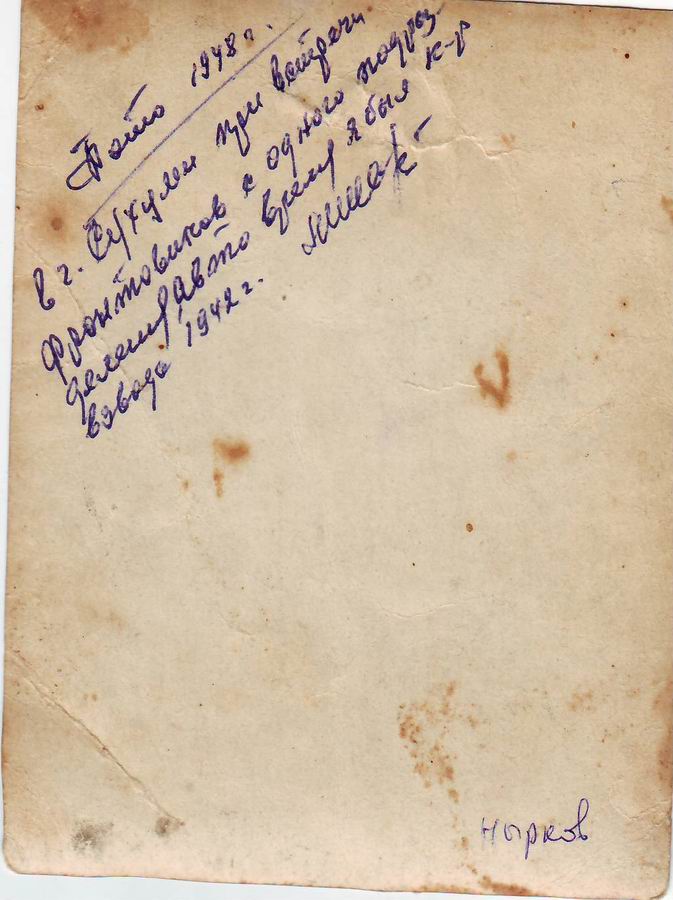 Фото 1948 г.
в г. Сухуми при встречи
фронтовиков с одного подраз-
деления, в это время я был к-р
взвода 1942 г.
Нырков